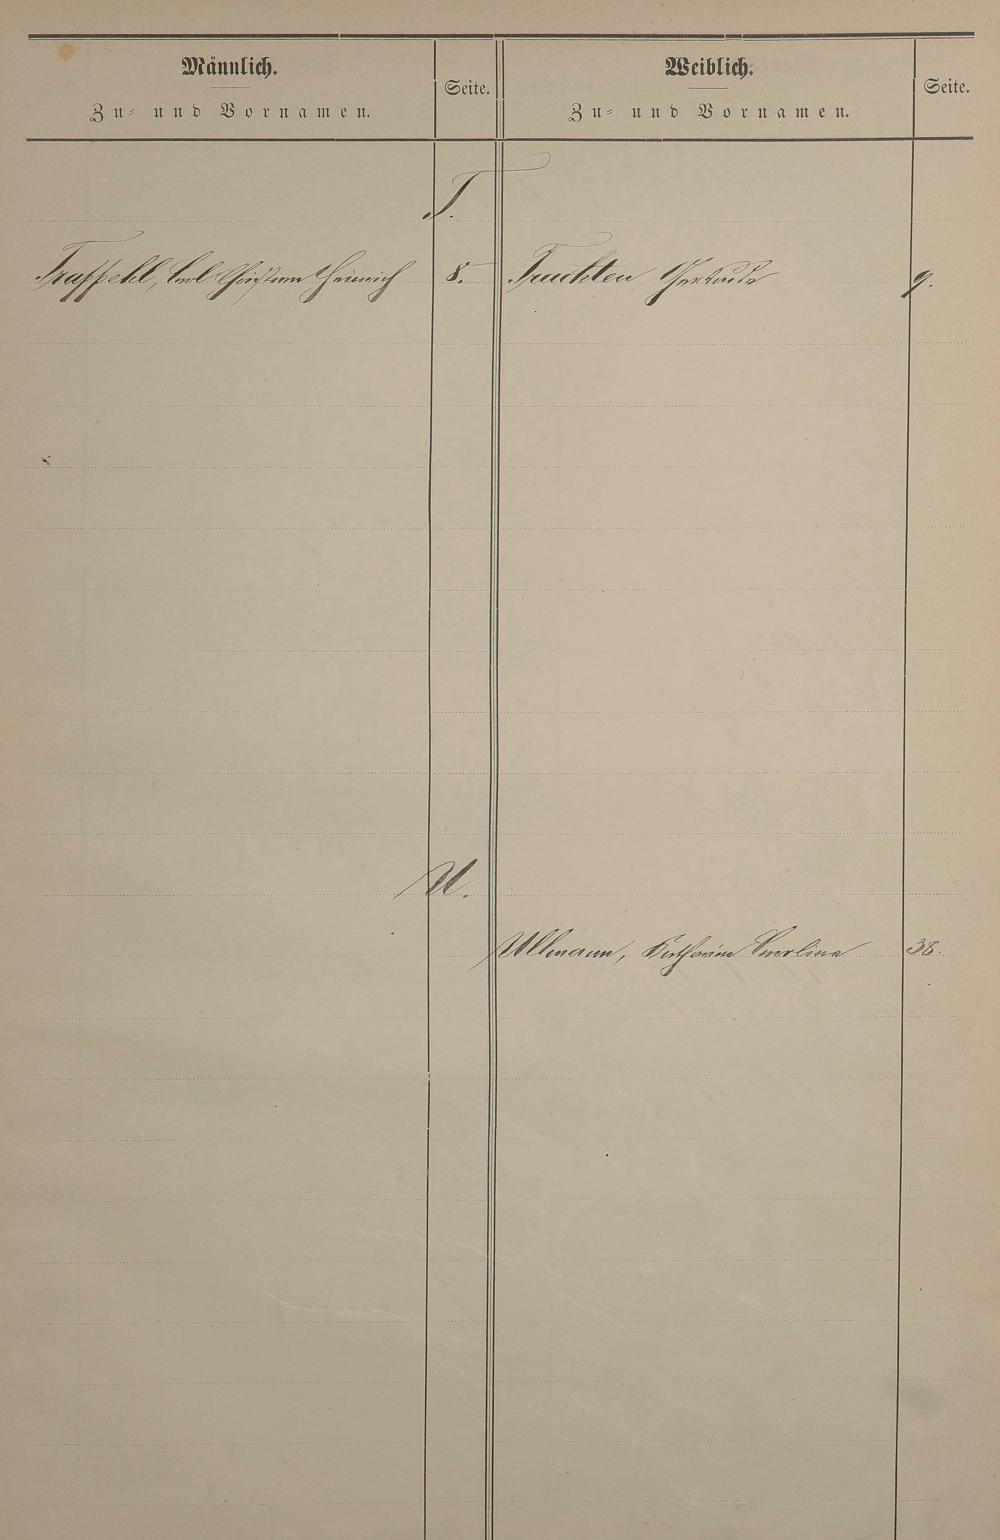 Männlich.
Zu- und Vornamen.
Seite.
Weiblich.
Zu- und Vornamen.
Seite.
T.
Trappehl, Carl Christian Heinrich 8.
Truchten Gertrude 9.
U.
Ullmann, Katharina Carolina 38.